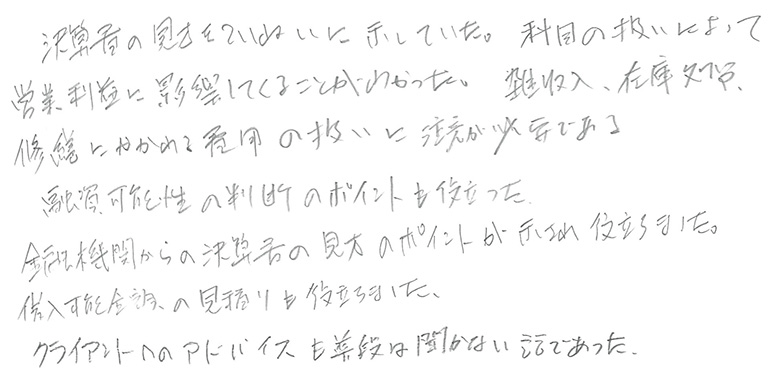 決算書の見方をていねいに示していた。科目の扱いによって
営業利益に影響してくることがわかった。雑収入、在庫処分、
修繕にかかわる費用の扱いに注意が必要である
融資可能性の判断のポイントも役立った。
金融機関からの決算書の見方のポイントが示され役立ちました。
借入可能金額の見積りも役立ちました。
クライアントへのアドバイスも普段は聞かない話であった。